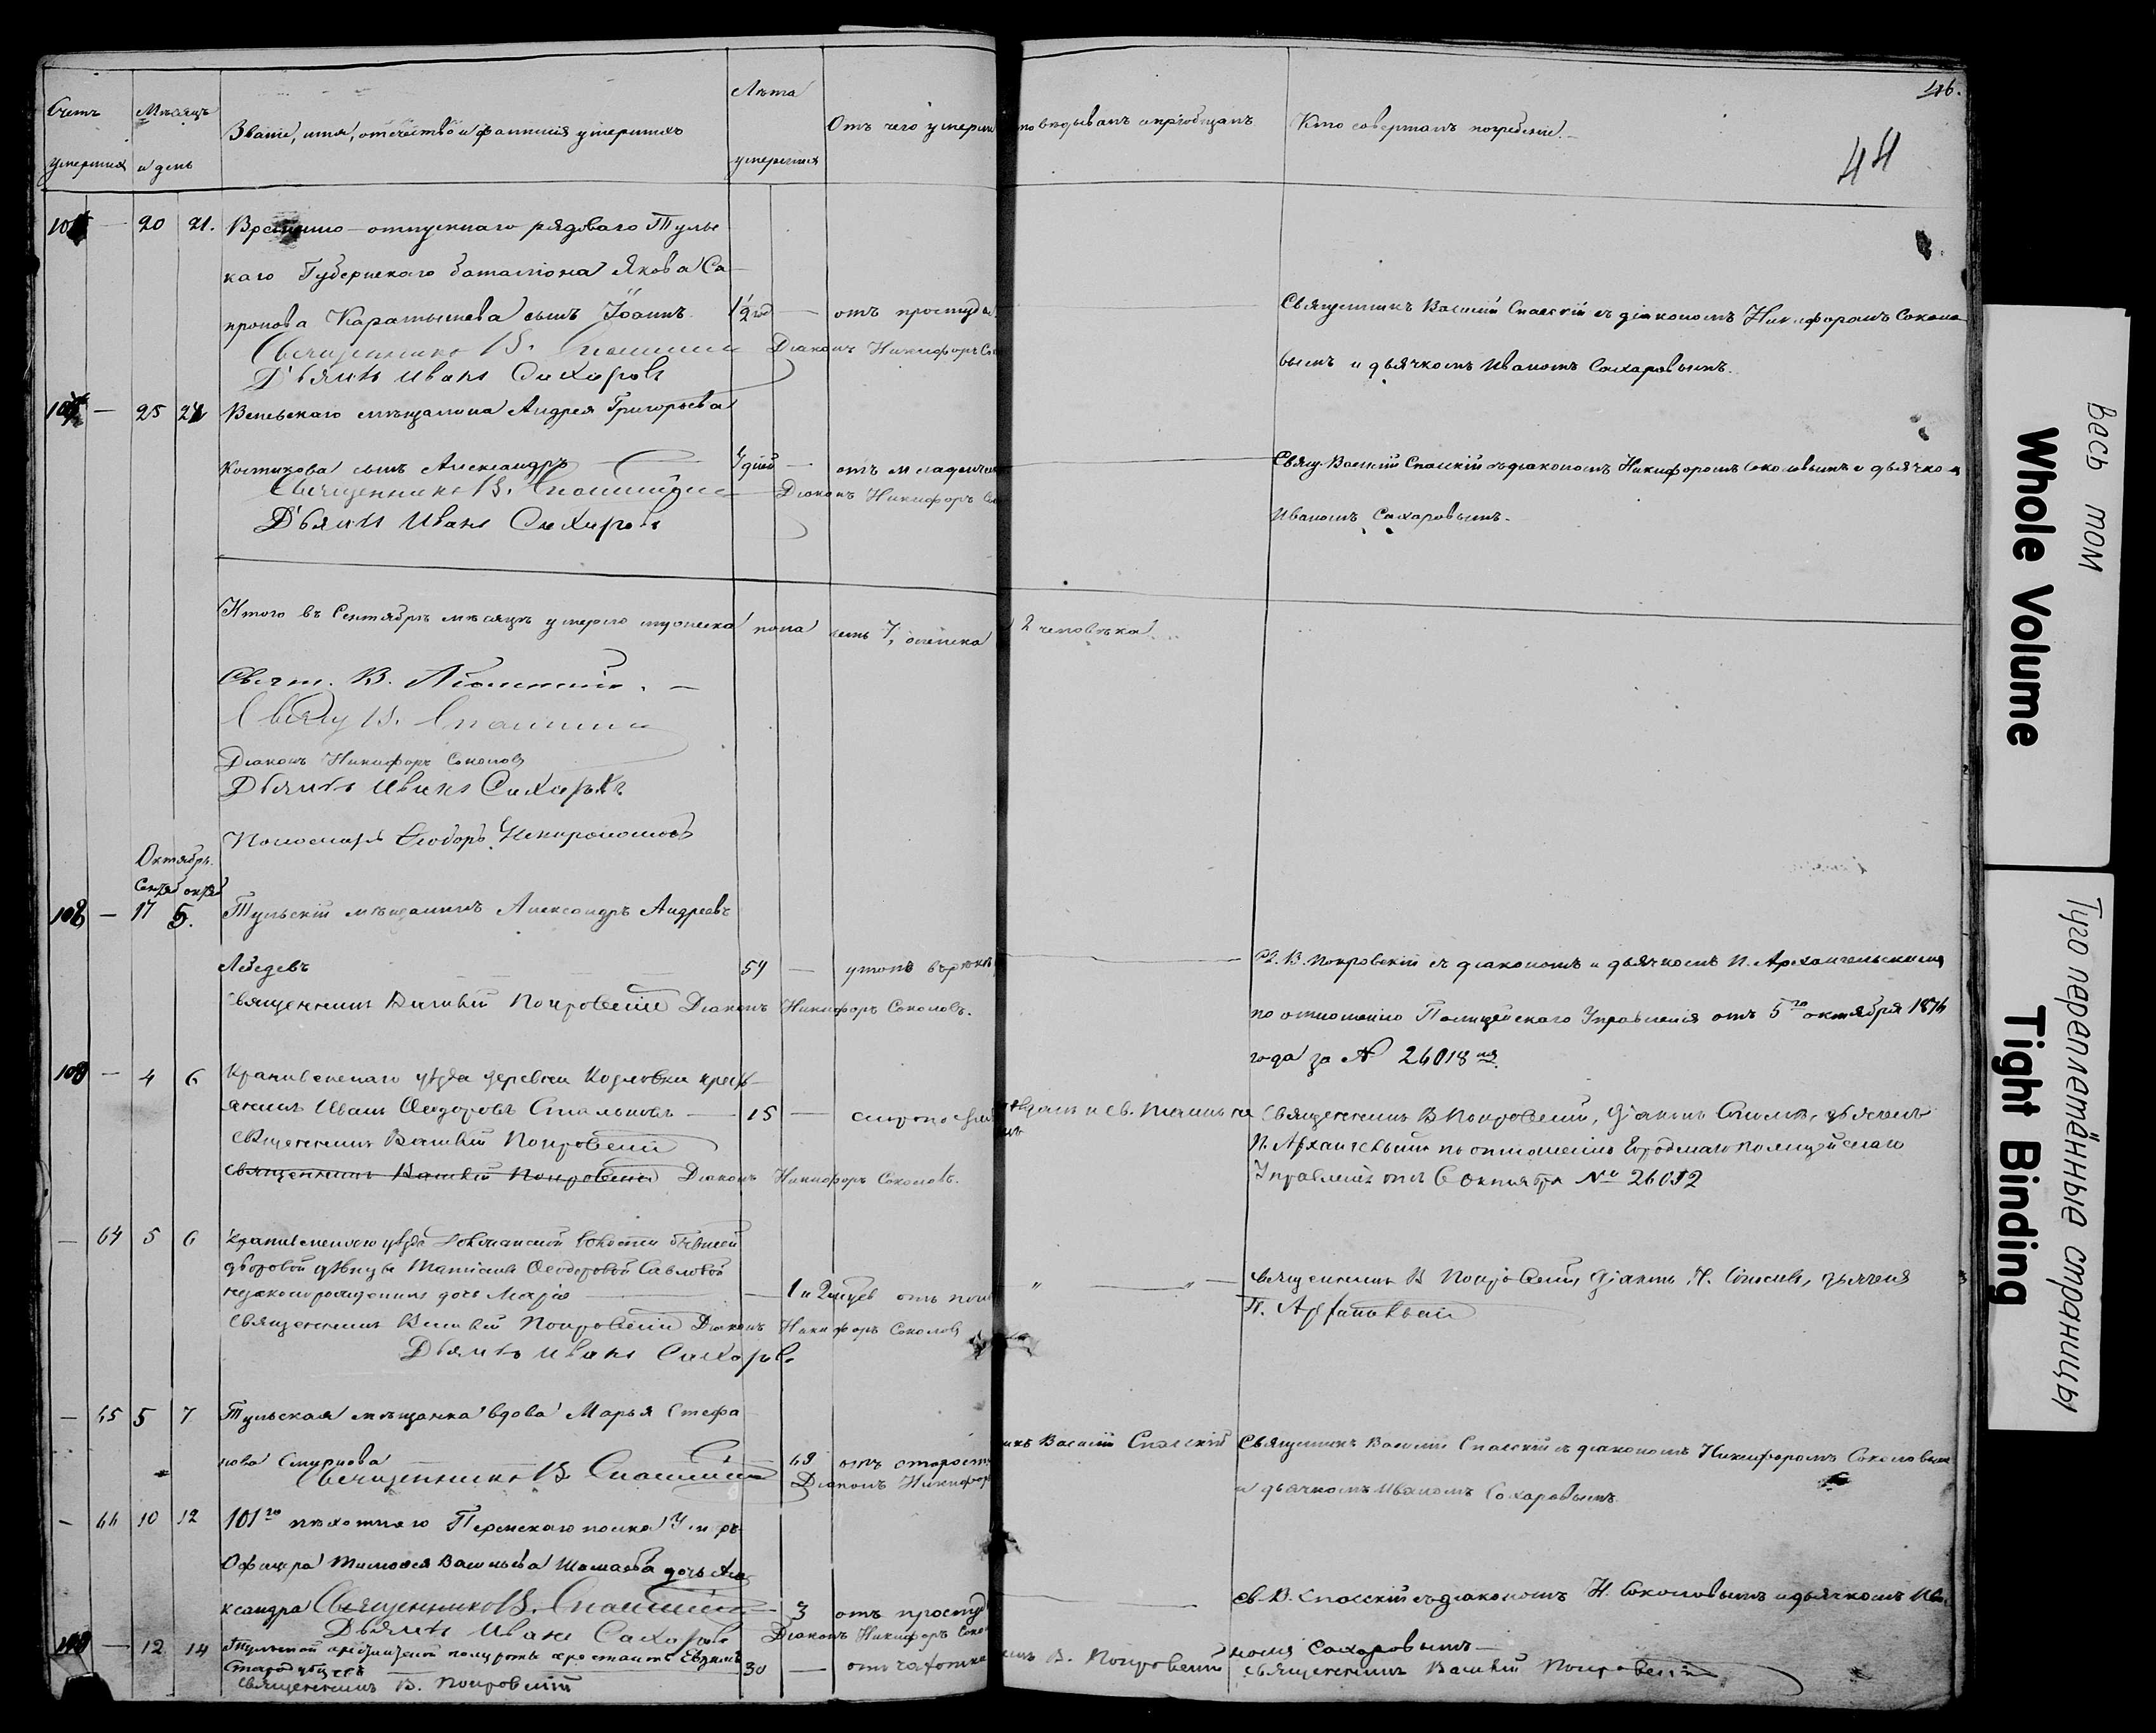 46.
44
Счетъ умершихъ
Мѣсяцъ и день
Званіе, имя, отчество и фамилія умершихъ
Лѣта умершихъ
Отъ чего умерли
Кто исповѣдывалъ и пріобщалъ
Кто совершалъ погребеніе.
20 21. Временно-отпускнаго рядоваго Туль
скаго Губернскаго баталіона Якова Са
пронова Каратышева сынъ Іоаннъ. 1½ год — отъ простуды
Священникъ Василій Спасскій съ діакономъ Никифоромъ Соколо
Священникъ В. Спасскій Діаконъ Никифоръ Со
вымъ и дьячкомъ Иваномъ Сахаровымъ.
Дьячекъ Иванъ Сахаровъ
— 25 Веневскаго мѣщанина Андрея Григорьева
Костикова сынъ Александръ дней — отъ младенчес
Свящ. Василій Спасскій съ діакономъ Никифоромъ Соколовымъ и дьячком
Священникъ В. Спасскій Діаконъ Никифоръ Со
Иваномъ Сахаровымъ.
Дьячекъ Иванъ Сахаровъ
Итого въ Сентябрѣ мѣсяцѣ умерло мужеска пола семь 7, женска 2 человѣка.
Свящ. В.
Свящ. В. Спасскій
Діаконъ Никифоръ Соколовъ
Дьячекъ Иванъ Сахаровъ
Пономарь Ѳеодоръ
Октябрь.
Сентяб октяб
108 — 17 5. Тульскій мѣщанинъ Александръ Андреевъ
Лебедевъ 54 — утопъ въ рѣкѣ
С. В. Покровскій съ діакономъ и дьячкомъ П. Архангельскимъ
Священникъ Василій Покровскій Діаконъ Никифоръ Соколовъ.
по отношенію Полицейскаго Управленія отъ 5го октября 1874
года за № 26018мъ.
109 — 4 6 Крапивенскаго уѣзда деревни Козловки крест
янинъ Иванъ Ѳеодоровъ Стальновъ — 15 — скоропостиж
Священникъ В Покровскій, Діаконъ Соколовъ, дьячекъ
Священникъ Василій Покровскій
П. Архангельскій по отношенію Городскаго полицейскаго
Священникъ Василій Покровскій Діаконъ Никифоръ Соколовъ.
Управленія отъ 6 Октября № 26052
— 64 5 6 Крапивенскаго уѣзда волости бывшей
дворовой дѣвицы Ѳеодоровой Савловой
незаконорожденная дочь Марія — 1 и 2 мѣсяцев отъ
" — " — Священникъ В Покровскій, Діаконъ Н. Соколовъ, дьячекъ
П. Архангельскій
Священникъ Василій Покровскій Діаконъ Никифоръ Соколовъ
Дьячекъ Иванъ Сахаровъ
— 65 5 7 Тульская мѣщанка вдова Марья Стефа
нова Смирнова 69 отъ старости
икъ Василій Спасскій Священникъ Василій Спасскій съ діакономъ Никифоромъ Соколовым
Священникъ В. Спасскій Діаконъ Никифоръ
и дьячкомъ Иваномъ Сахаровымъ
— 66 10 12 101го пѣхотнаго Пермскаго полка Унтеръ
Офицера Тимоѳея Васильева дочь Але
ксандра Священникъ В. Спасскій — 3 отъ простуд
Св. В. Спасскій съ діакономъ Н. Соколовымъ и дьячкомъ Ив
Дьячекъ Иванъ Сахаровъ Діаконъ Никифоръ Соко
номъ Сахаровымъ —
— 12 14 Тульской роты арестантъ
30 — отъ чахотки
икъ В. Покровскій Священникъ Василій Покровскій
Священникъ В. Покровскій
Весь том
Whole Volume
Туго переплетённые страницы
Tight Binding